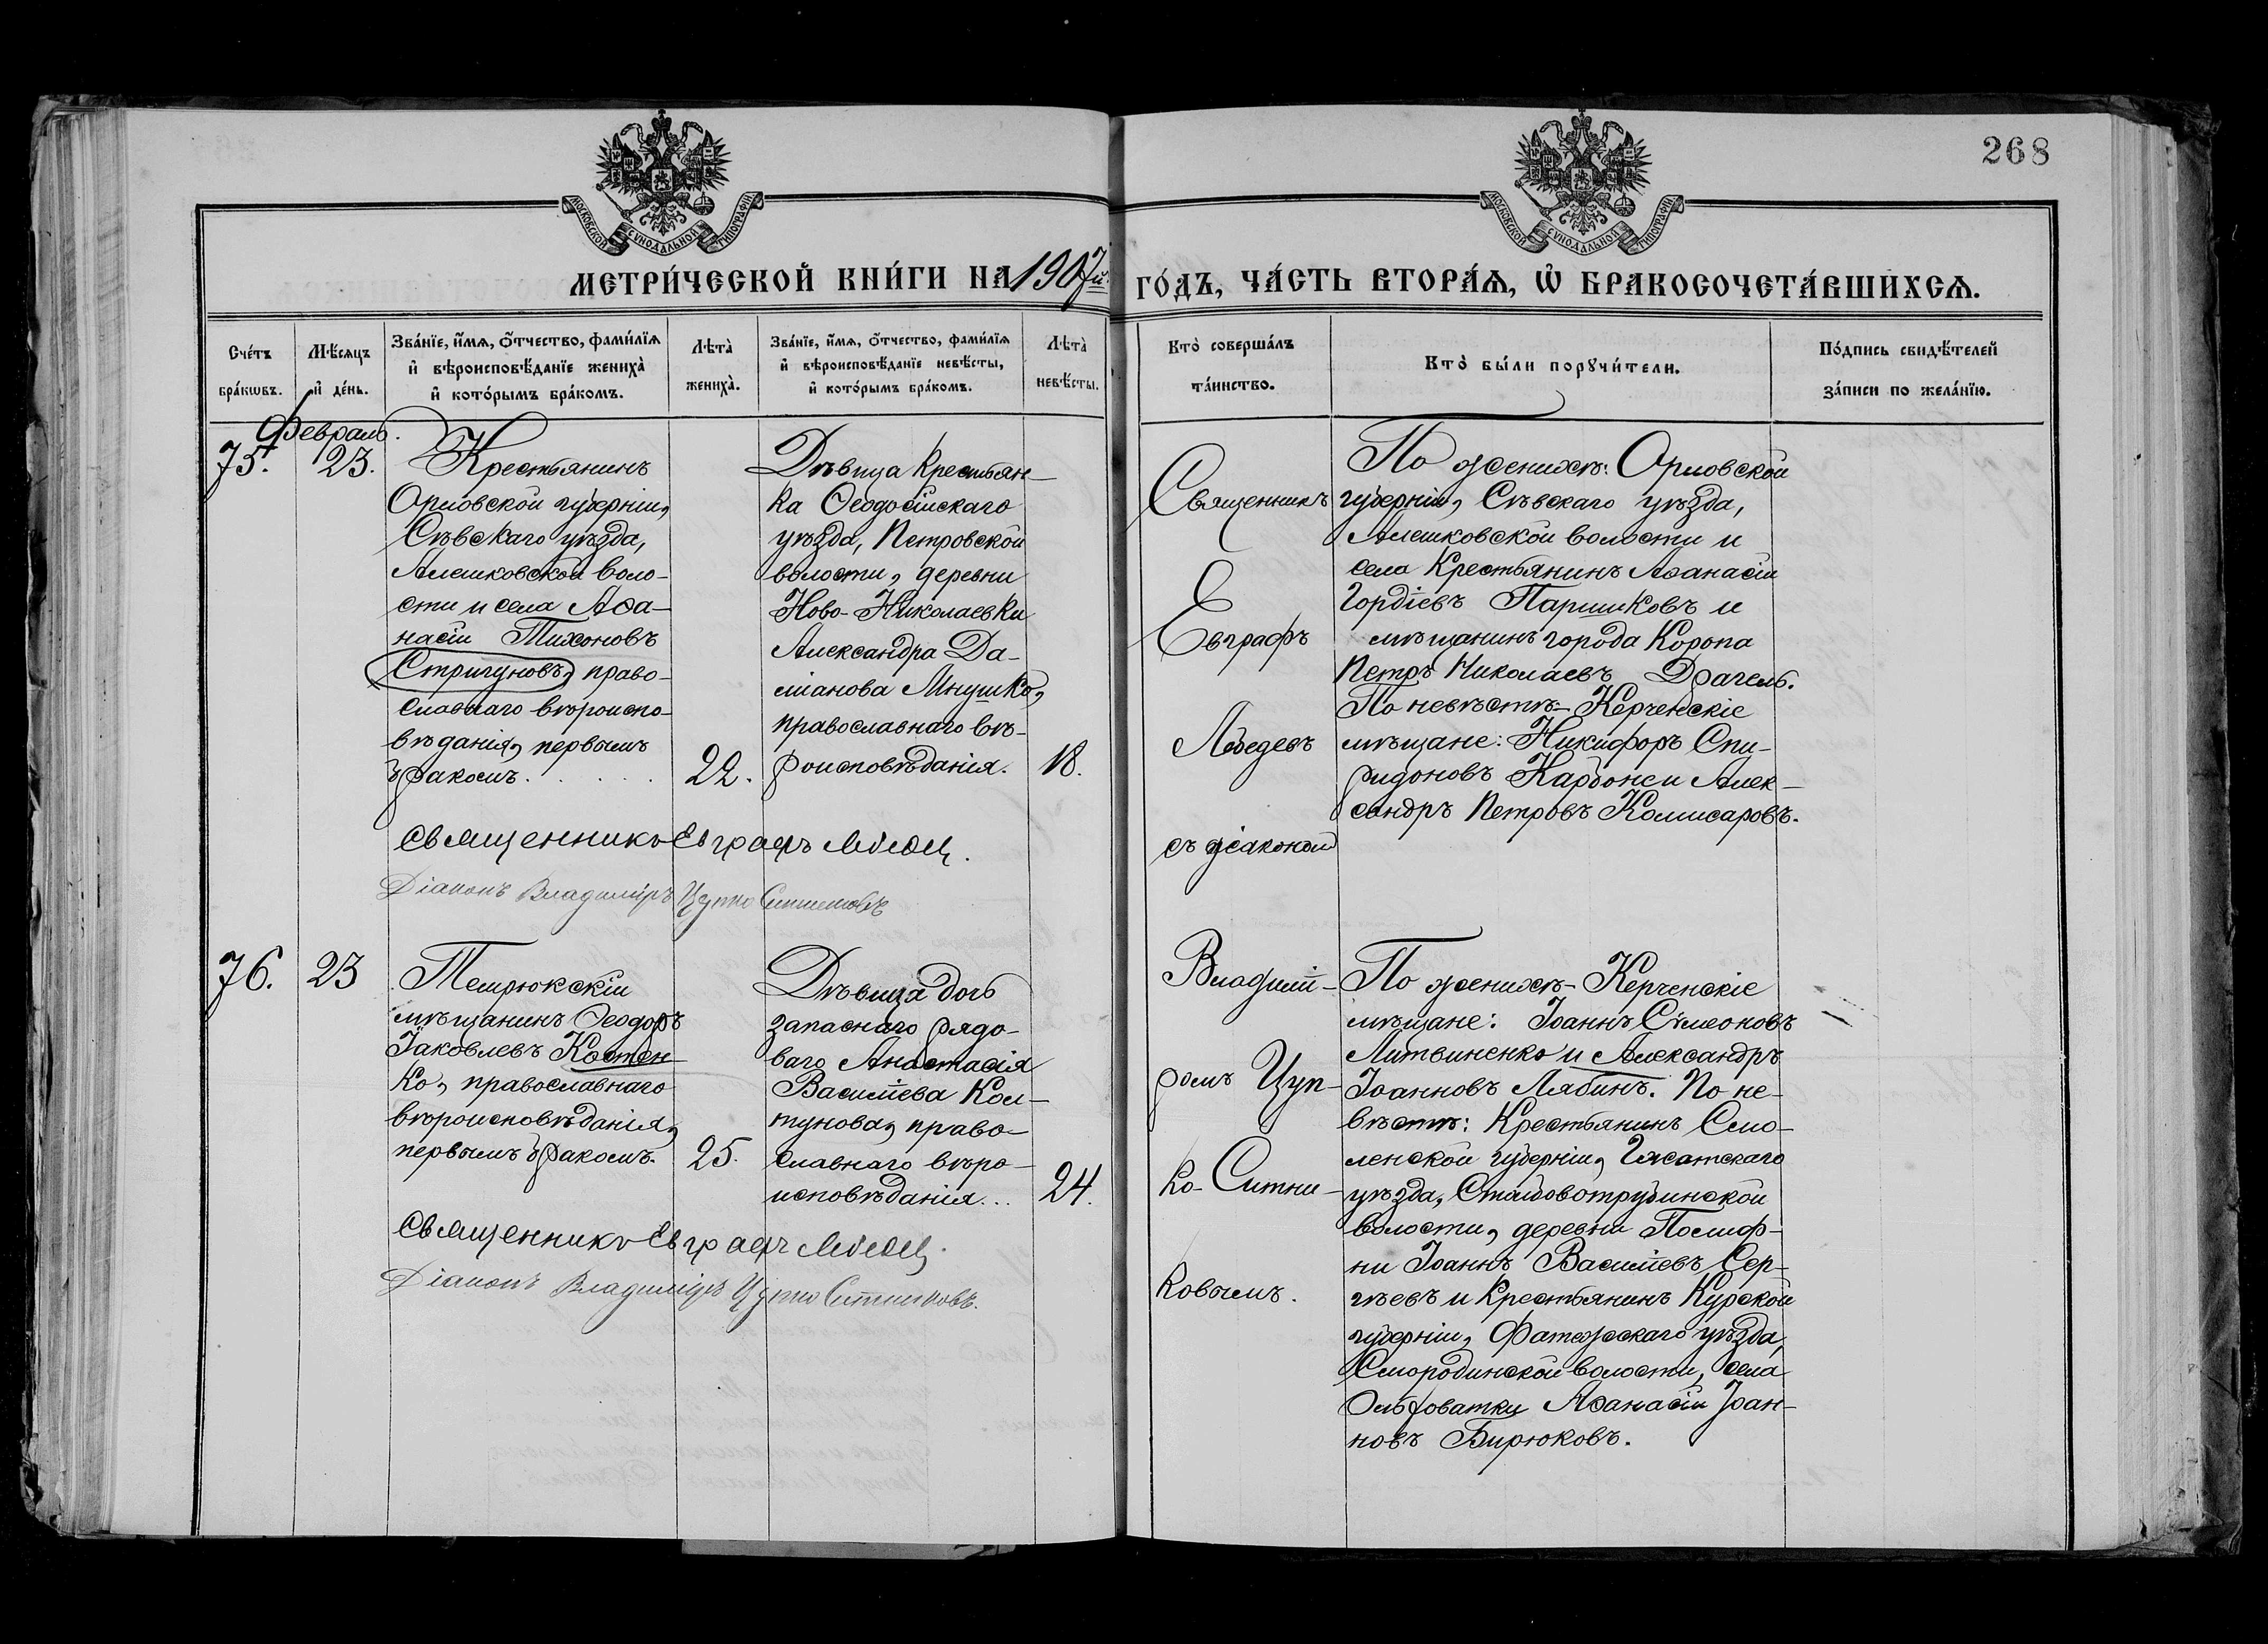 268
МОСКОВСКОЙ СѴНОДАЛЬНОЙ ТИПОГРАФІИ
МОСКОВСКОЙ СѴНОДАЛЬНОЙ ТИПОГРАФІИ
МЕТРИ́ЧЕСКОЙ КНИ́ГИ НА 1907й ГО́ДЪ, ЧА́СТЬ ВТОРА́Ѧ, Ѽ БРАКОСОЧЕТА́ВШИХСѦ.
Сче́тъ бра́кѡвъ.
Мѣ́сѧцъ и҆ де́нь.
Зва́нїе, и҆́мѧ, ѻ҆́тчество, фами́лїѧ
и҆ вѣроисповѣ́данїе жениха̀
и҆ кото́рымъ бра́комъ.
Лѣта̀ жениха̀.
Зва́нїе, и҆́мѧ, ѻ҆́тчество, фами́лїѧ
и҆ вѣроисповѣ́данїе невѣ́сты,
и҆ кото́рымъ бра́комъ.
Лѣта̀ невѣ́сты.
Кто̀ соверша́лъ
та́инство.
Кто̀ бы́ли порꙋчи́тели.
По́дпись свидѣ́телей
за́писи по жела́нїю.
Февраль.
75. 23.
Крестьянинъ
Орловской губерніи,
Сѣвскаго уѣзда,
Алешковской воло-
сти и села Аѳа-
насій Тихоновъ
Стригуновъ, право-
славнаго вѣроиспо-
вѣданія, первымъ
бракомъ. . . . . .
22.
Дѣвица крестьян-
ка Ѳеодосійскаго
уѣзда, Петровской
волости, деревни
Ново-Николаевки
Александра Да-
міанова Мнушко,
православнаго вѣ-
роисповѣданія.
18.
Священникъ
Евграфъ
Лебедевъ
съ діакономъ
Владимі-
ромъ Цуп-
ко-Ситни-
ковымъ.
По женихѣ: Орловской
губерніи, Сѣвскаго уѣзда,
Алешковской волости и
села крестьянинъ Аѳанасій
Гордіевъ Паршиковъ и
мѣщанинъ города Коропа
Петръ Николаевъ Драгель.
По невѣстѣ - Керченскіе
мѣщане: Никифоръ Спи-
ридоновъ Карбонси Алек-
сандръ Петровъ Комисаровъ.
Священникъ Евграфъ Лебедев
Діаконъ Владиміръ Цупко Ситниковъ
76. 23
Темрюкскій
мѣщанинъ Ѳеодоръ
Іаковлевъ Костен
ко, православнаго
вѣроисповѣданія,
первымъ бракомъ.
25.
Дѣвица дочь
запаснаго рядо-
ваго Анастасія
Василіева Кол-
тунова, право-
славнаго вѣро-
исповѣданія...
24.
По женихѣ - Керченскіе
мѣщане: Іоаннъ Сѵмеоновъ
Литвиненко и Александръ
Іоанновъ Лябинъ. По не-
вѣстѣ: крестьянинъ Смо-
ленской губерніи, Гжатскаго
уѣзда,
волости, деревни
ни Іоаннъ Василіевъ Сер-
гѣевъ и крестьянинъ Курской
губерніи, Фатежскаго уѣзда,
Смородинской волости, села
Ольховатки Аѳанасій Іоан-
новъ Бирюковъ.
Священникъ Евграфъ Лебедев
Діаконъ Владиміръ Цупко Ситниковъ.